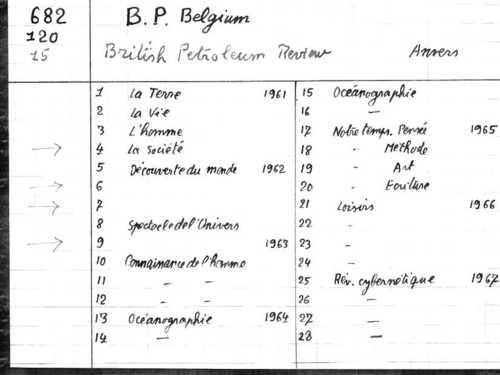 682 B.P. Belgium
120
15 British Petroleum Review Anvers
1 La Terre 1961
2 La Vie
3 L'homme
→ 4 La Société
5 Découverte du monde 1962
→ 6
→ 7
8 Spectacle de l'Univers
→ 9 1963
10 Connaissance de l'homme
11 — —
12 — —
13 Océanographie 1964
14 —
15 Océanographie
16 —
17 Notre temps. Pensée 1965
18 - Méthode
19 - Art
20 - Ecriture
21 Loisirs 1966
22 -
23 -
24 -
25 Rév. cybernétique 1967
26 —
27 —
28 —